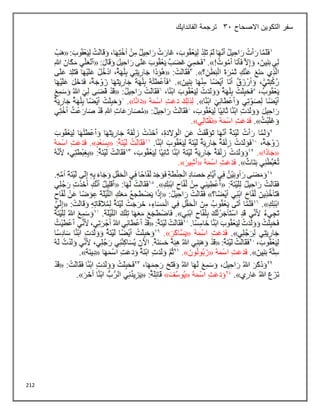 سفر التكوين الاصحاح ٣٠ ترجمة الفاندايك
١فَلَمَّا رَأَتْ رَاحِيلُ أَنَّهَا لَمْ تَلِدْ لِيَعْقُوبَ، غَارَتْ رَاحِيلُ مِنْ أُخْتِهَا، وَقَالَتْ لِيَعْقُوبَ: «هَبْ
لِي بَنِينَ، وَإِلاَّ فَأَنَا أَمُوتُ!». ٢فَحَمِيَ غَضَبُ يَعْقُوبَ عَلَى رَاحِيلَ وَقَالَ: «أَلَعَلِّي مَكَانَ اللهِ
الَّذِي مَنَعَ عَنْكِ ثَمْرَةَ الْبَطْنِ؟». ٣فَقَالَتْ: «هُوَذَا جَارِيَتِي بِلْهَةُ، ادْخُلْ عَلَيْهَا فَتَلِدَ عَلَى
رُكْبَتَيَّ، وَأُرْزَقُ أَنَا أَيْضًا مِنْهَا بَنِينَ». ٤فَأَعْطَتْهُ بِلْهَةَ جَارِيَتَهَا زَوْجَةً، فَدَخَلَ عَلَيْهَا
يَعْقُوبُ، ٥فَحَبِلَتْ بِلْهَةُ وَوَلَدَتْ لِيَعْقُوبَ ابْنًا، ٦فَقَالَتْ رَاحِيلُ: «قَدْ قَضَى لِيَ اللهُ وَسَمِعَ
أَيْضًا لِصَوْتِي وَأَعْطَانِيَ ابْنًا». لِذلِكَ دَعَتِ اسْمَهُ «دَانًا». ٧وَحَبِلَتْ أَيْضًا بِلْهَةُ جَارِيَةُ
رَاحِيلَ وَوَلَدَتِ ابْنًا ثَانِيًا لِيَعْقُوبَ، ٨فَقَالَتْ رَاحِيلُ: «مُصَارَعَاتِ اللهِ قَدْ صَارَعْتُ أُخْتِي
وَغَلَبْتُ». فَدَعَتِ اسْمَهُ «نَفْتَالِي».
٩وَلَمَّا رَأَتْ لَيْئَةُ أَنَّهَا تَوَقَّفَتْ عَنِ الْوِلاَدَةِ، أَخَذَتْ زِلْفَةَ جَارِيَتَهَا وَأَعْطَتْهَا لِيَعْقُوبَ
زَوْجَةً، ١٠فَوَلَدَتْ زِلْفَةُ جَارِيَةُ لَيْئَةَ لِيَعْقُوبَ ابْنًا. ١١فَقَالَتْ لَيْئَةُ: «بِسَعْدٍ». فَدَعَتِ اسْمَهُ
«جَادًا». ١٢وَوَلَدَتْ زِلْفَةُ جَارِيَةُ لَيْئَةَ ابْنًا ثَانِيًا لِيَعْقُوبَ، ١٣فَقَالَتْ لَيْئَةُ: «بِغِبْطَتِي، لأَنَّهُ
تُغَبِّطُنِي بَنَاتٌ». فَدَعَتِ اسْمَهُ «أَشِيرَ».
١٤وَمَضَى رَأُوبَيْنُ فِي أَيَّامِ حَصَادِ الْحِنْطَةِ فَوَجَدَ لُفَّاحًا فِي الْحَقْلِ وَجَاءَ بِهِ إِلَى لَيْئَةَ أُمِّهِ.
فَقَالَتْ رَاحِيلُ لِلَيْئَةَ: «أَعْطِينِي مِنْ لُفَّاحِ ابْنِكِ». ١٥فَقَالَتْ لَهَا: «أَقَلِيلٌ أَنَّكِ أَخَذْتِ رَجُلِي
فَتَأْخُذِينَ لُفَّاحَ ابْنِي أَيْضًا؟» فَقَالَتْ رَاحِيلُ: «إِذًا يَضْطَجِعُ مَعَكِ اللَّيْلَةَ عِوَضًا عَنْ لُفَّاحِ
ابْنِكِ». ١٦فَلَمَّا أَتَى يَعْقُوبُ مِنَ الْحَقْلِ فِي الْمَسَاءِ، خَرَجَتْ لَيْئَةُ لِمُلاَقَاتِهِ وَقَالَتْ: «إِلَيَّ
تَجِيءُ لأَنِّي قَدِ اسْتَأْجَرْتُكَ بِلُفَّاحِ ابْنِي». فَاضْطَجَعَ مَعَهَا تِلْكَ اللَّيْلَةَ. ١٧وَسَمِعَ اللهُ لِلَيْئَةَ
فَحَبِلَتْ وَوَلَدَتْ لِيَعْقُوبَ ابْنًا خَامِسًا. ١٨فَقَالَتْ لَيْئَةُ: «قَدْ أَعْطَانِي اللهُ أُجْرَتِي، لأَنِّي أَعْطَيْتُ
جَارِيَتِي لِرَجُلِي». فَدَعَتِ اسْمَهُ «يَسَّاكَرَ». ١٩وَحَبِلَتْ أَيْضًا لَيْئَةُ وَوَلَدَتِ ابْنًا سَادِسًا
لِيَعْقُوبَ، ٢٠فَقَالَتْ لَيْئَةُ: «قَدْ وَهَبَنِي اللهُ هِبَةً حَسَنَةً. الآنَ يُسَاكِنُنِي رَجُلِي، لأَنِّي وَلَدْتُ لَهُ
سِتَّةَ بَنِينَ». فَدَعَتِ اسْمَهُ «زَبُولُونَ». ٢١ثُمَّ وَلَدَتِ ابْنَةً وَدَعَتِ اسْمَهَا «دِينَةَ».
٢٢وَذَكَرَ اللهُ رَاحِيلَ، وَسَمِعَ لَهَا اللهُ وَفَتَحَ رَحِمَهَا، ٢٣فَحَبِلَتْ وَوَلَدَتِ ابْنًا فَقَالَتْ: «قَدْ
نَزَعَ اللهُ عَارِي». ٢٤وَدَعَتِ اسْمَهُ «يُوسُفَ» قَائِلَةً: «يَزِيدُنِي الرَّبُّ ابْنًا آخَرَ».
212